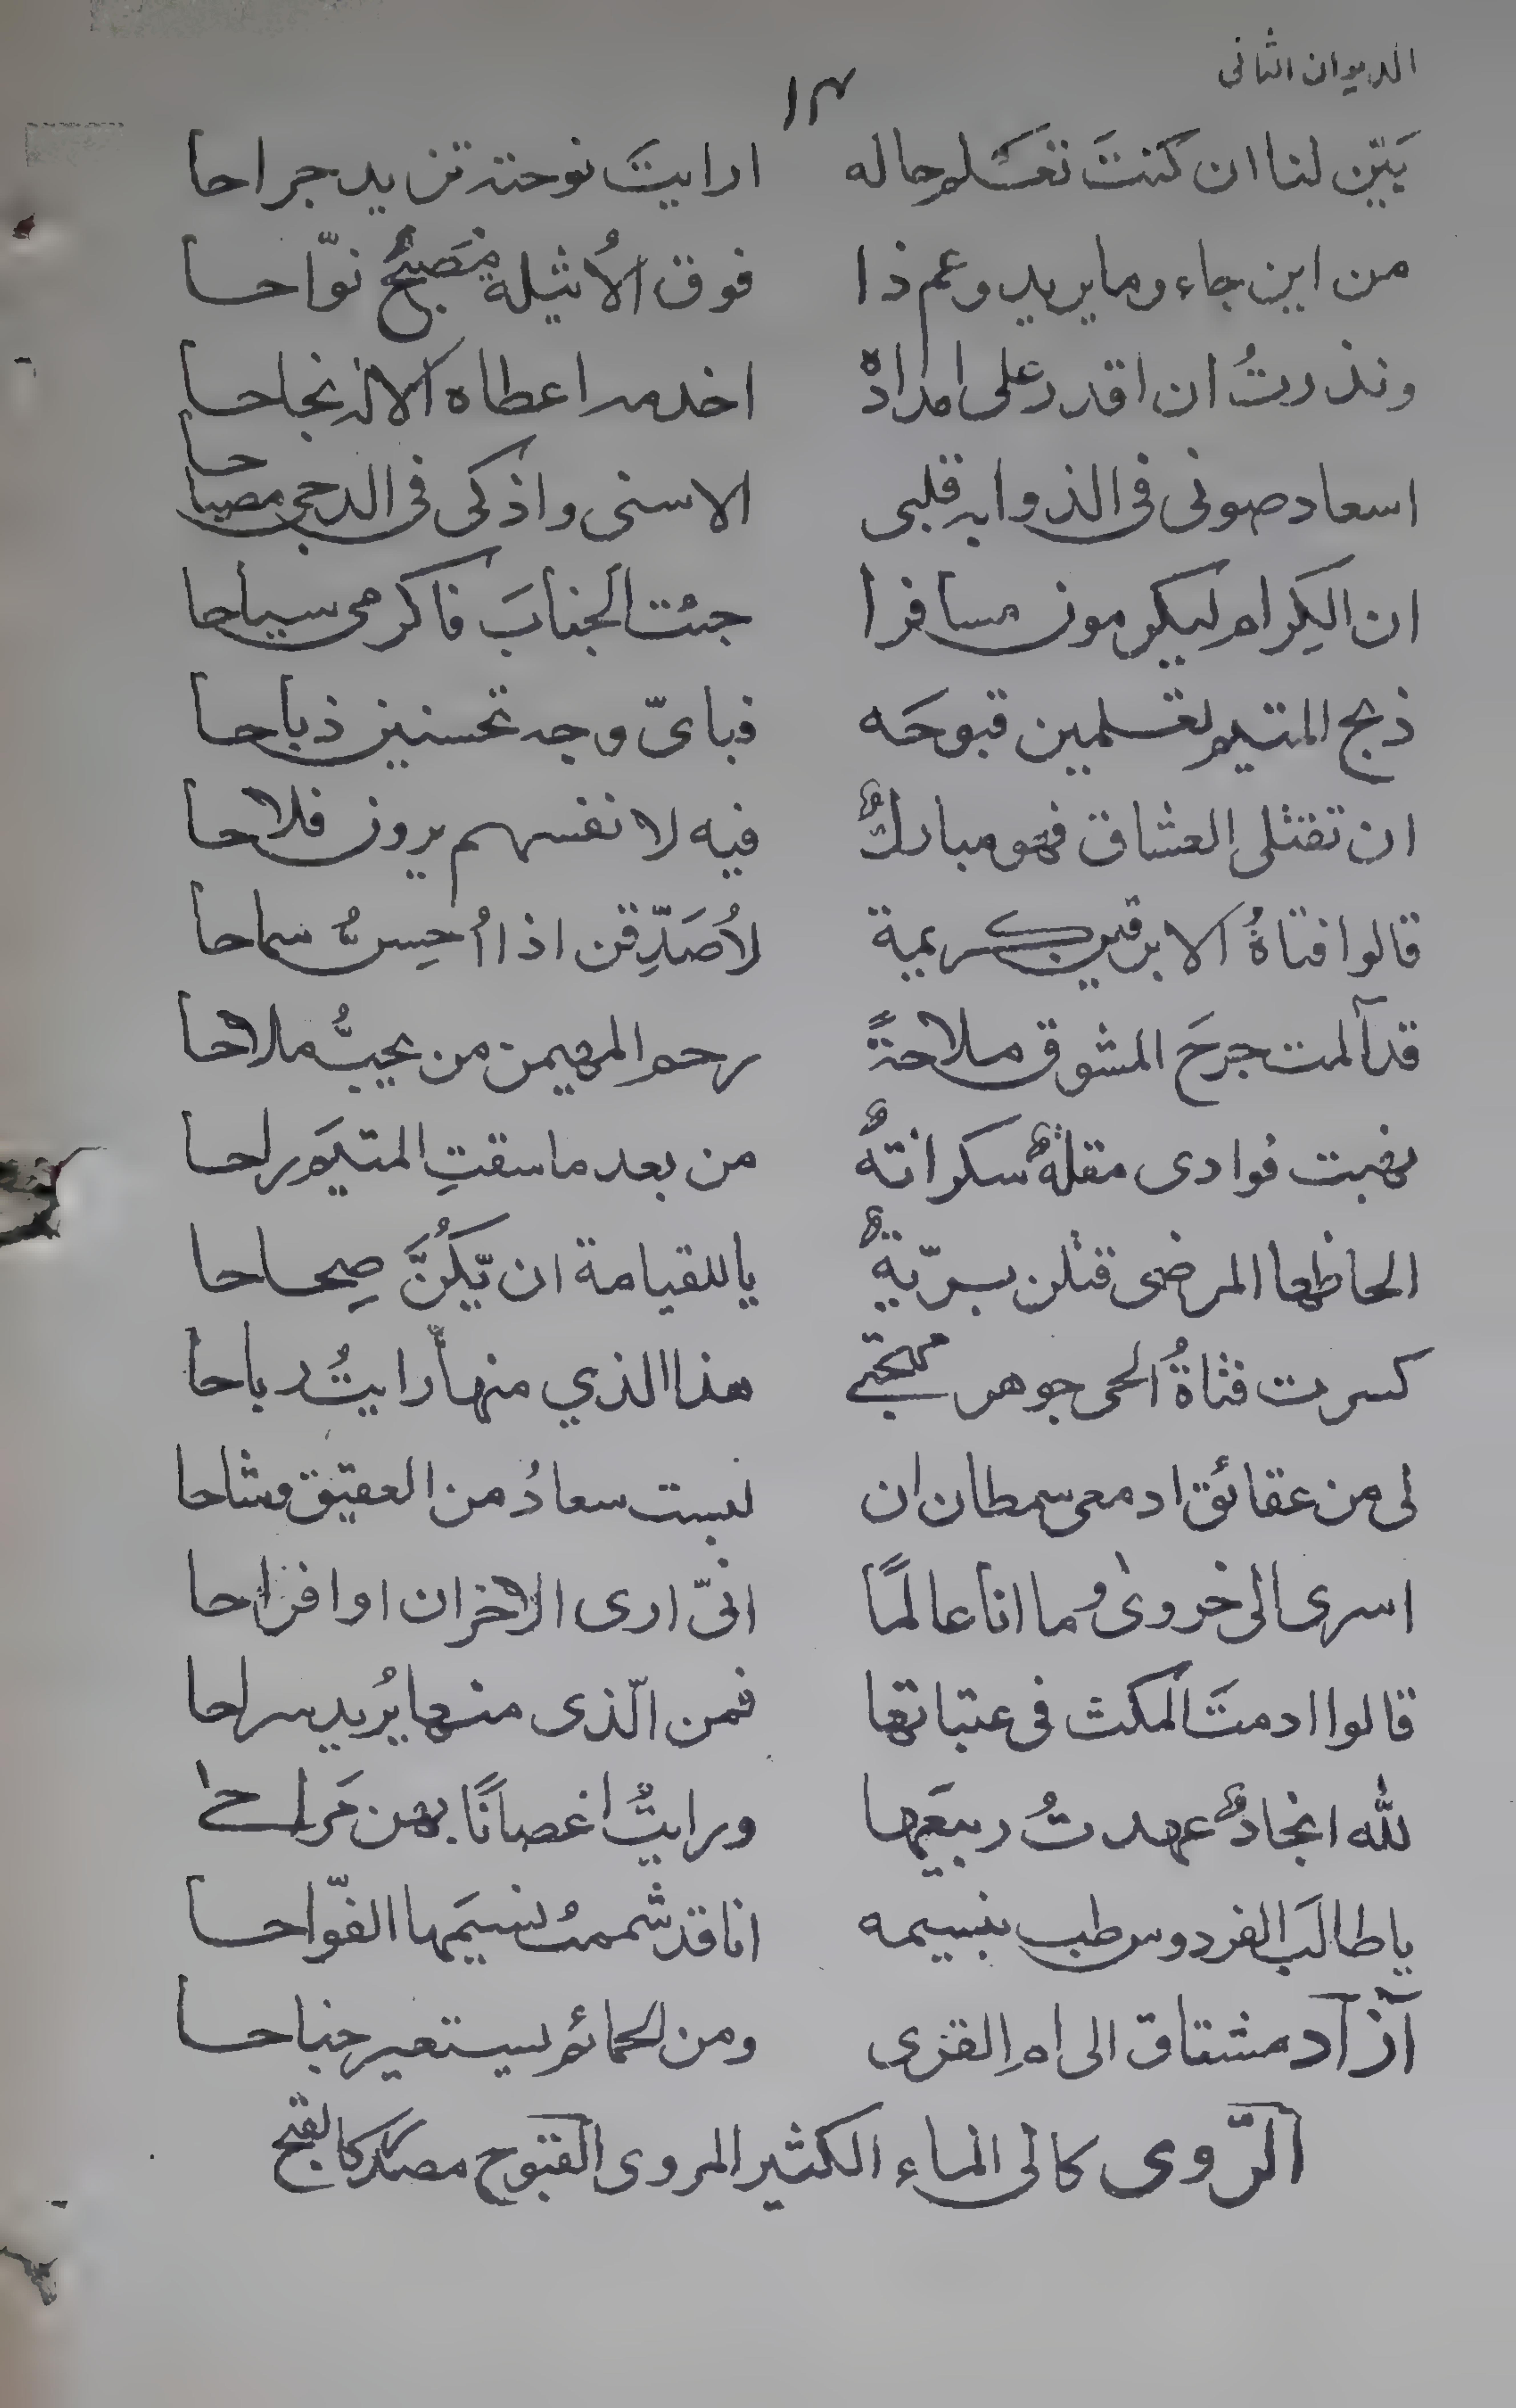 الديوان الثانى
١٣
بَيّن لنا ان كنتَ تعسلم حاله ارايتَ نوحته تزيد جراحا
من اين جاء وما يريد وعم ذا فوق الاُثيلة مُصَبحٌ نوّاحا
ونذرتُ ان اقدر على امداده اخدمه اعطاه الاله نجاحا
اسعاد صونى فى الذوابه قلبى الاسنى واذكى فى الدجى مصباحا
ان الكِرام ليكرمون مسافرا جئت الجنابَ فاكرمى سياحا
ذبح المتيم تعسلمين قبوحَه فباىّ وجه تحسنين ذباحا
ان تقتلى العشاق فهو مباركٌ فيه لانفسهم يرون فلاحا
قالوا فتاةُ الابرقين كريمة لاُصَدِّقن اذا اُحِسُّ سماحا
قد آلمت جرحَ المشوق ملاحةً رحم المهيمن من يحبُّ ملاحا
نهبت فوادى مقلةٌ سكرانةٌ من بعد ما سقتِ المتيَم راحا
الحاظها المرضى قتلن بريّةً ياللقيامة ان يّكُنَّ صِحاحا
كسرت فتاةُ الحى جوهر مهجتى هذا الذي منها رايتُ رباحا
لى من عقائق ادمعى سمطان ان لبست سعادُ من العقيق وشاحا
اسرى الى خروى وما انا عالمًا انىّ ارى الاحزان او افراحا
قالوا ادمتَ المكث فى عتباتها فمن الّذى منها يُريد سراحا
لله انجادٌ عهدتُ ربيعَها ورايتُ اغصانًا بهن مَراحا
يا طالبَ الفردوس طب بنسيمه انا قد شممتُ نسيمَها الفوّاحا
آزاد مشتاق الى امِ القرى ومن الحمائم يستعير جناحا
الرّوى كالى الماء الكثير المروى القبوح مصدر كالقبح